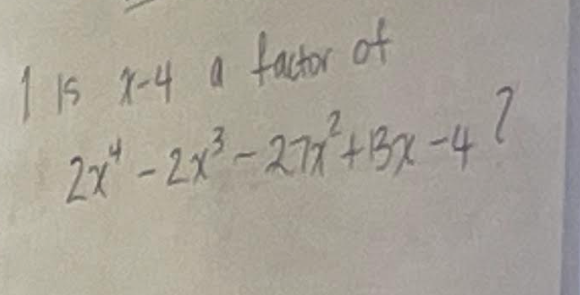 1 is x-4 a factor of
2x⁴ - 2x³ - 27x² + 13x - 4 ?